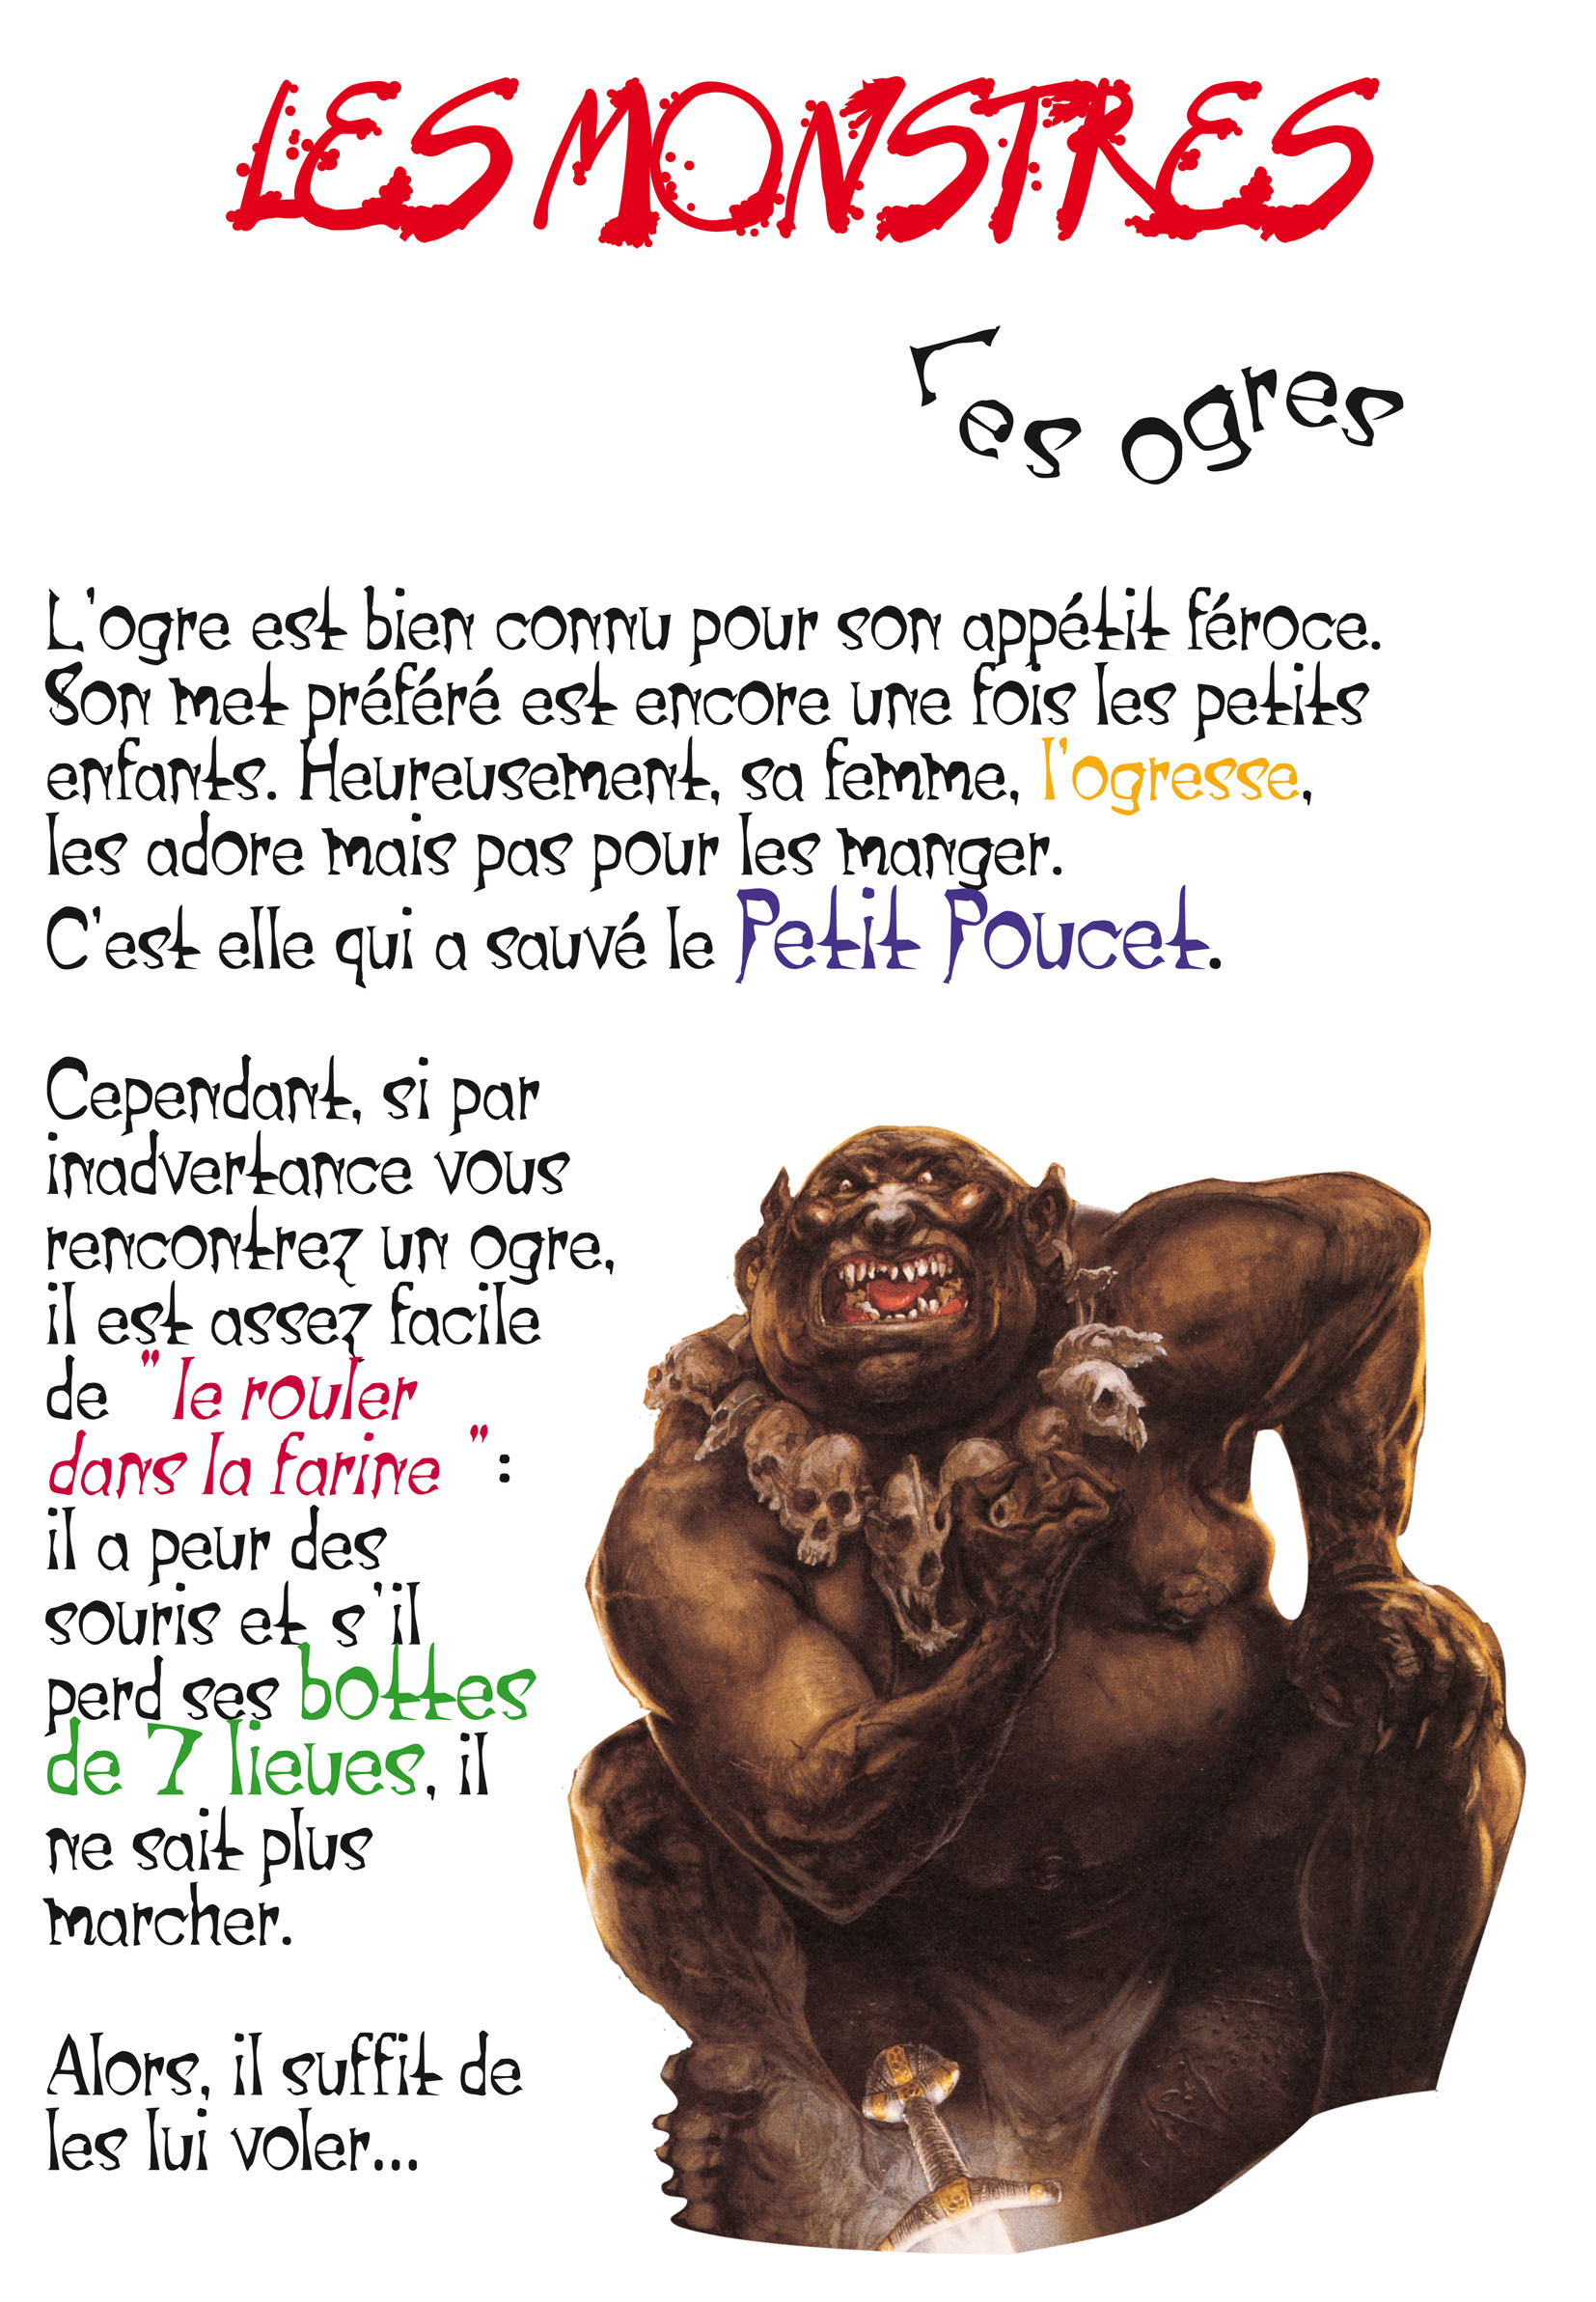 LES MONSTRES
Les ogres
L'ogre est bien connu pour son appétit féroce.
Son met préféré est encore une fois les petits
enfants. Heureusement, sa femme, l'ogresse,
les adore mais pas pour les manger.
C'est elle qui a sauvé le Petit Poucet.
Cependant, si par
inadvertance vous
rencontrez un ogre,
il est assez facile
de " le rouler
dans la farine " :
il a peur des
souris et s'il
perd ses bottes
de 7 lieues, il
ne sait plus
marcher.
Alors, il suffit de
les lui voler...